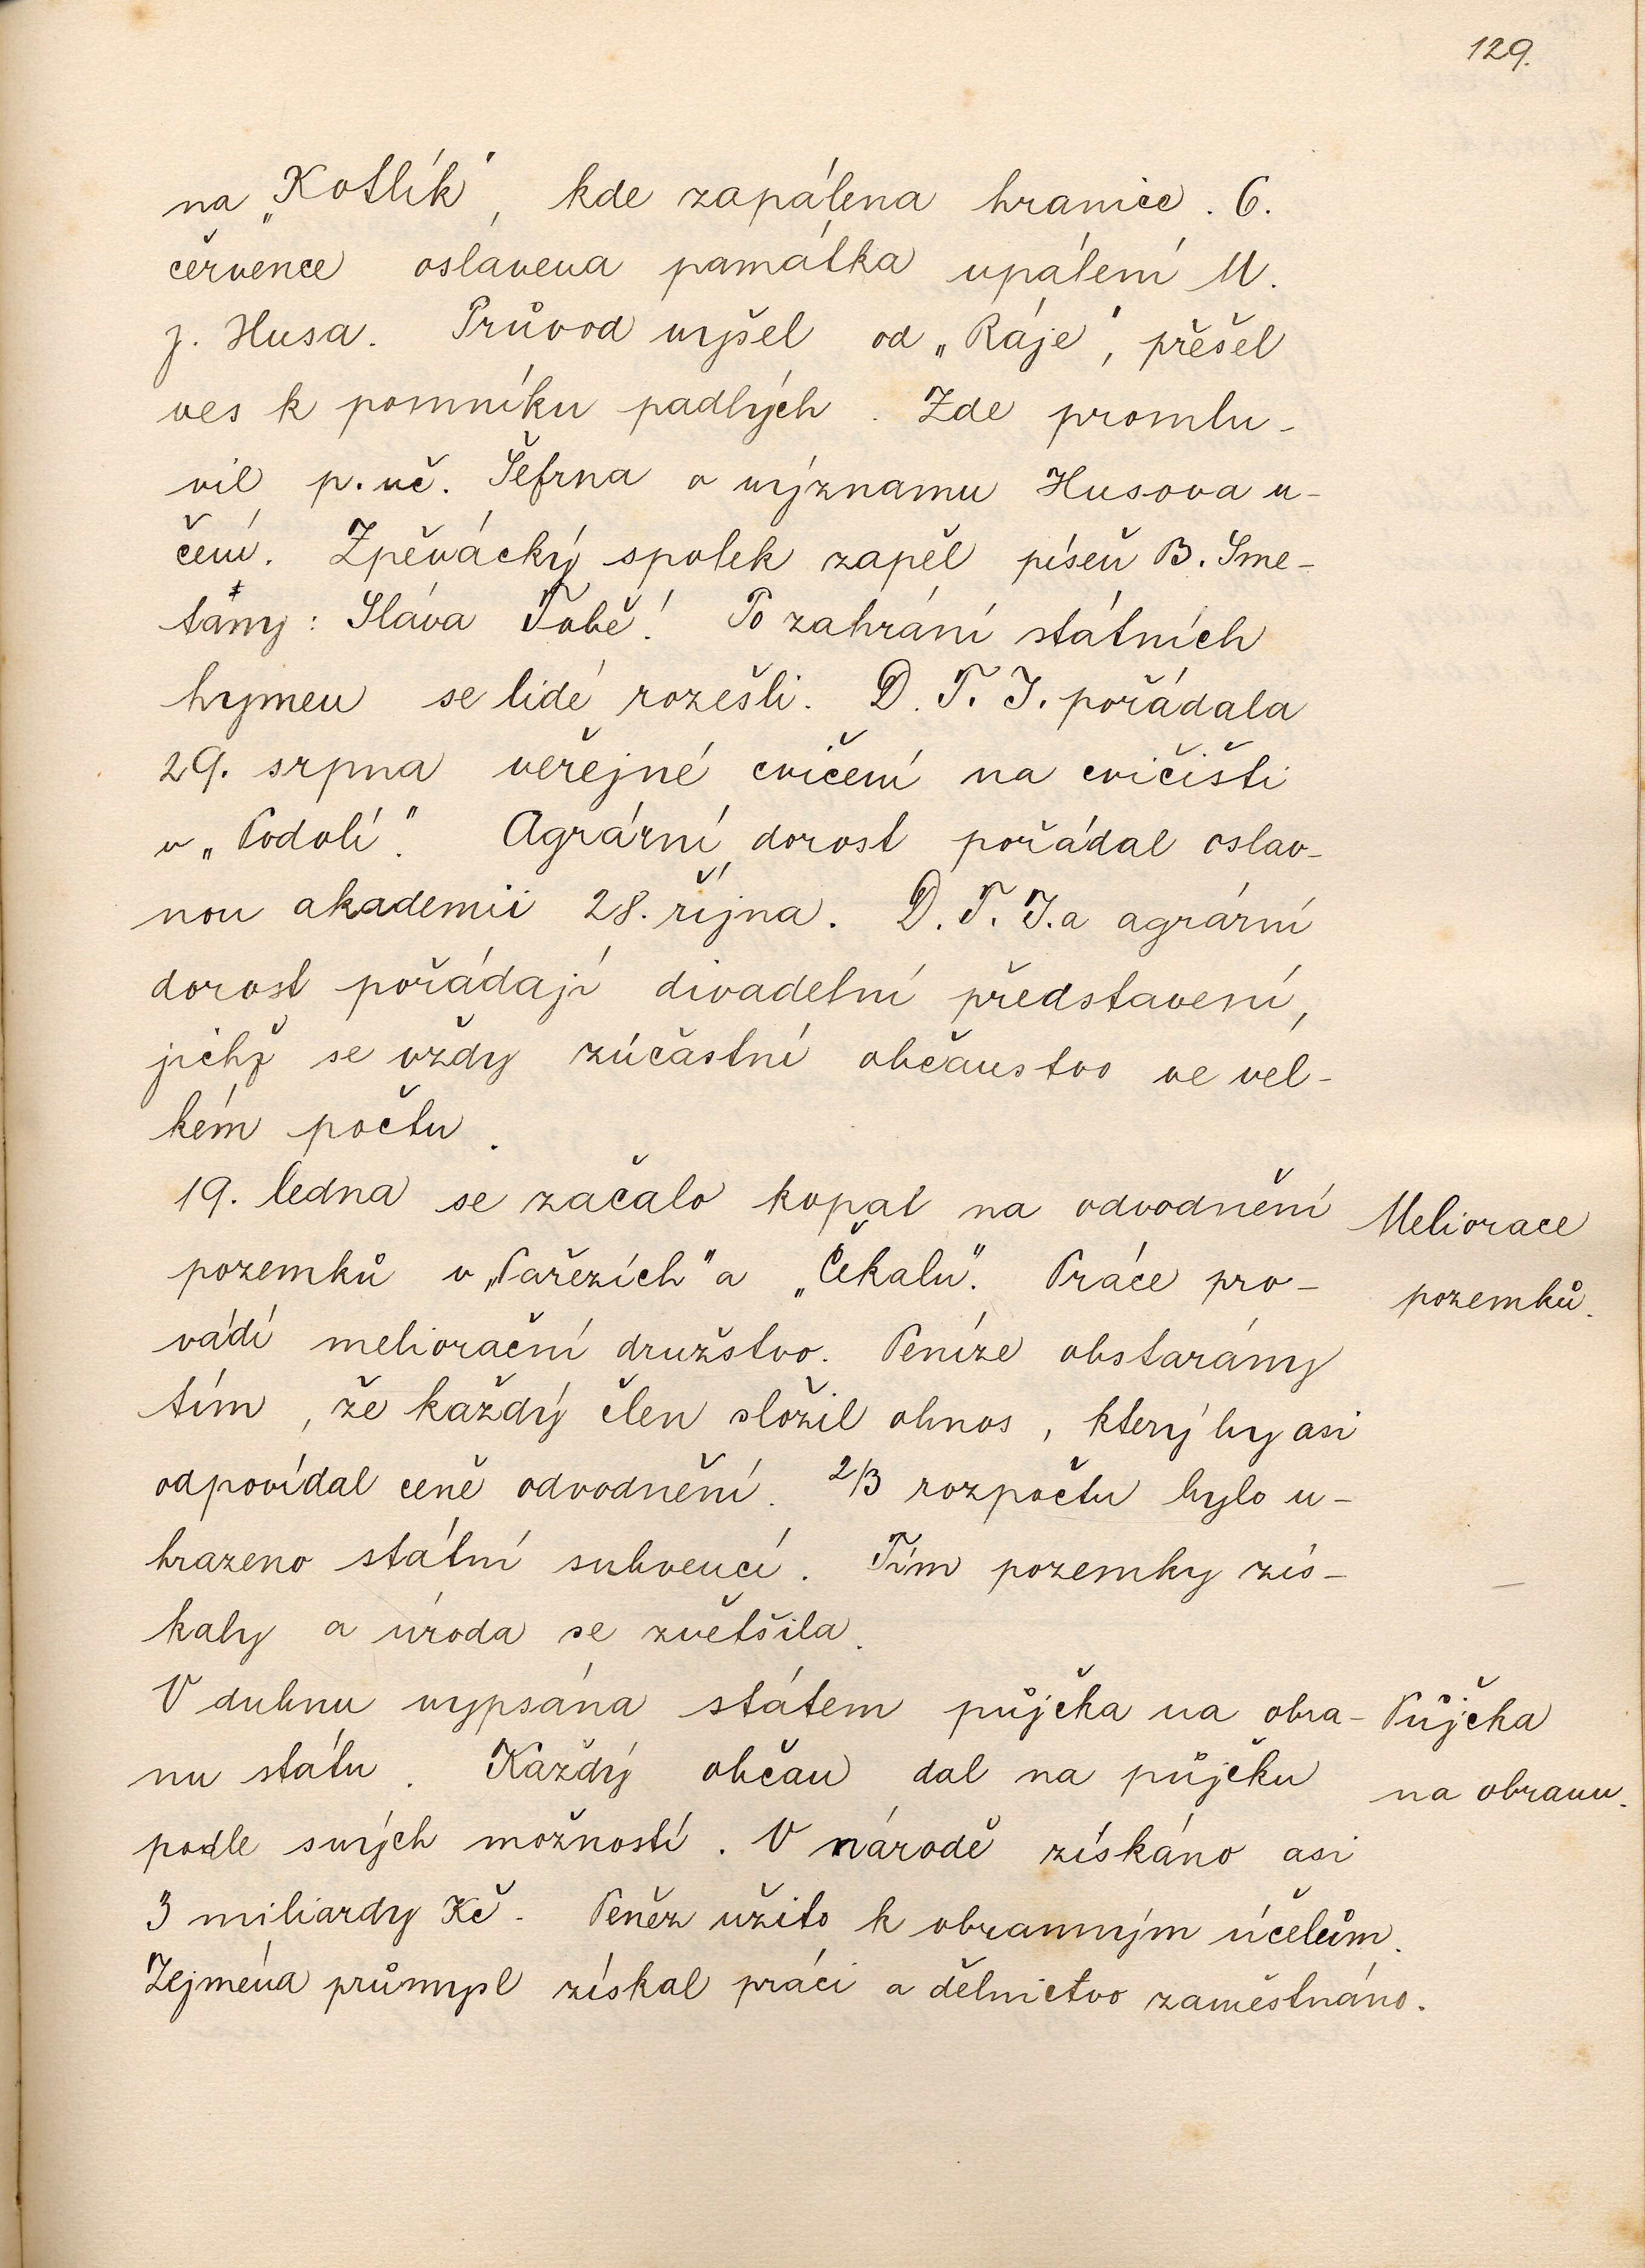 129.
na „Kotlík", kde zapálena hranice. 6.
července oslavena památka upálení M.
J. Husa. Průvod vyšel od „Ráje", přešel
ves k pomníku padlých. Zde promlu-
vil p. uč. Šefrna o významu Husova u-
čení. Zpěvácký spolek zapěl píseň B. Sme-
tany: Sláva Tobě! Po zahrání státních
hymen se lidé rozešli. D. T. J. pořádala
29. srpna veřejné cvičení na cvičišti
v „Podolí". Agrární dorost pořádal oslav-
nou akademii 28. října. D. T. J. a agrární
dorost pořádají divadelní představení,
jichž se vždy zúčastní občanstvo ve vel-
kém počtu.
19. ledna se začalo kopat na odvodnění
Meliorace
pozemků v „Pařezích" a „Čekalu". Práce pro-
pozemků.
vádí meliorační družstvo. Peníze obstarány
tím, že každý člen složil obnos, který by asi
odpovídal ceně odvodnění. 2/3 rozpočtu bylo u-
hrazeno státní subvencí. Tím pozemky zís-
kaly a úroda se zvětšila.
V dubnu vypsána státem půjčka na obra-
Půjčka
nu státu. Každý občan dal na půjčku
na obranu.
podle svých možností. V národě získáno asi
3 miliardy Kč. Peněz užito k obranným účelům.
Zejména průmysl získal práci a dělnictvo zaměstnáno.